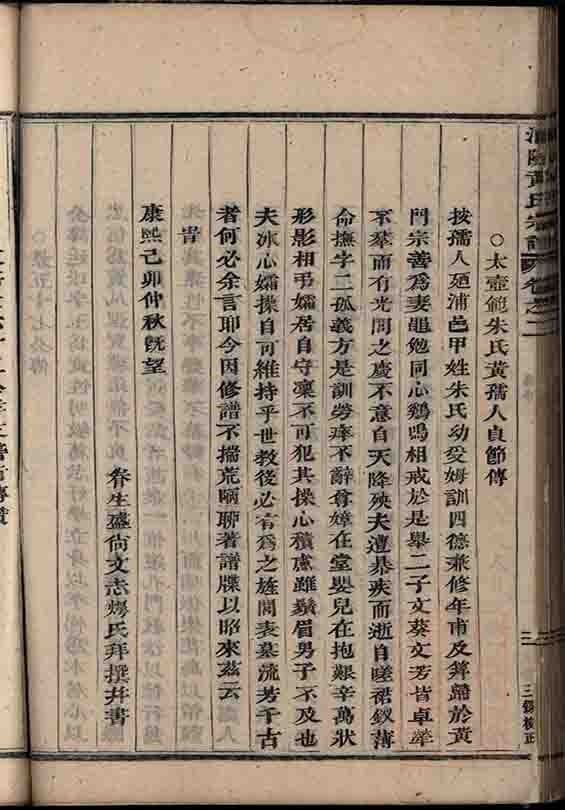 黃氏宗譜 卷之二
○太壺範朱氏黃孺人貞節傳
按孺人廼浦邑甲姓朱氏幼受姆訓四德兼修年甫及笄歸於黃
門宗善為妻黽勉同心鷄鳴相戒於是舉二子文葵文芳皆卓犖
不羣而有光閭之慶不意自天降殃夫遭暴疾而逝自嗟裙釵薄
命撫字二孤義方是訓勞瘁不辭尊嫜在堂嬰兒在抱艱辛萬狀
形影相弔孀居自守凜不可犯其操心積慮雖鬚眉男子不及也
夫冰心孀操自可維持乎世教後必有為之旌閭表墓流芳千古
者何必余言耶今因修譜不揣荒陋聊著譜牒以昭來茲云
峕
康熙己卯仲秋旣望
眷生盛尙文志燝氏拜撰幷書
三
三錫校正